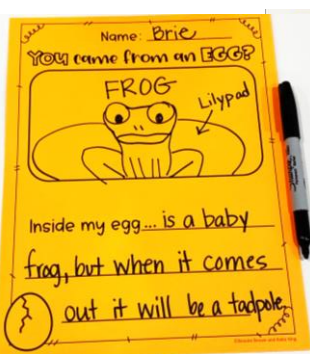 Name: Brie
YOU came from an EGG?
FROG
Lilypad
Inside my egg... is a baby
frog, but when it comes
out it will be a tadpole.